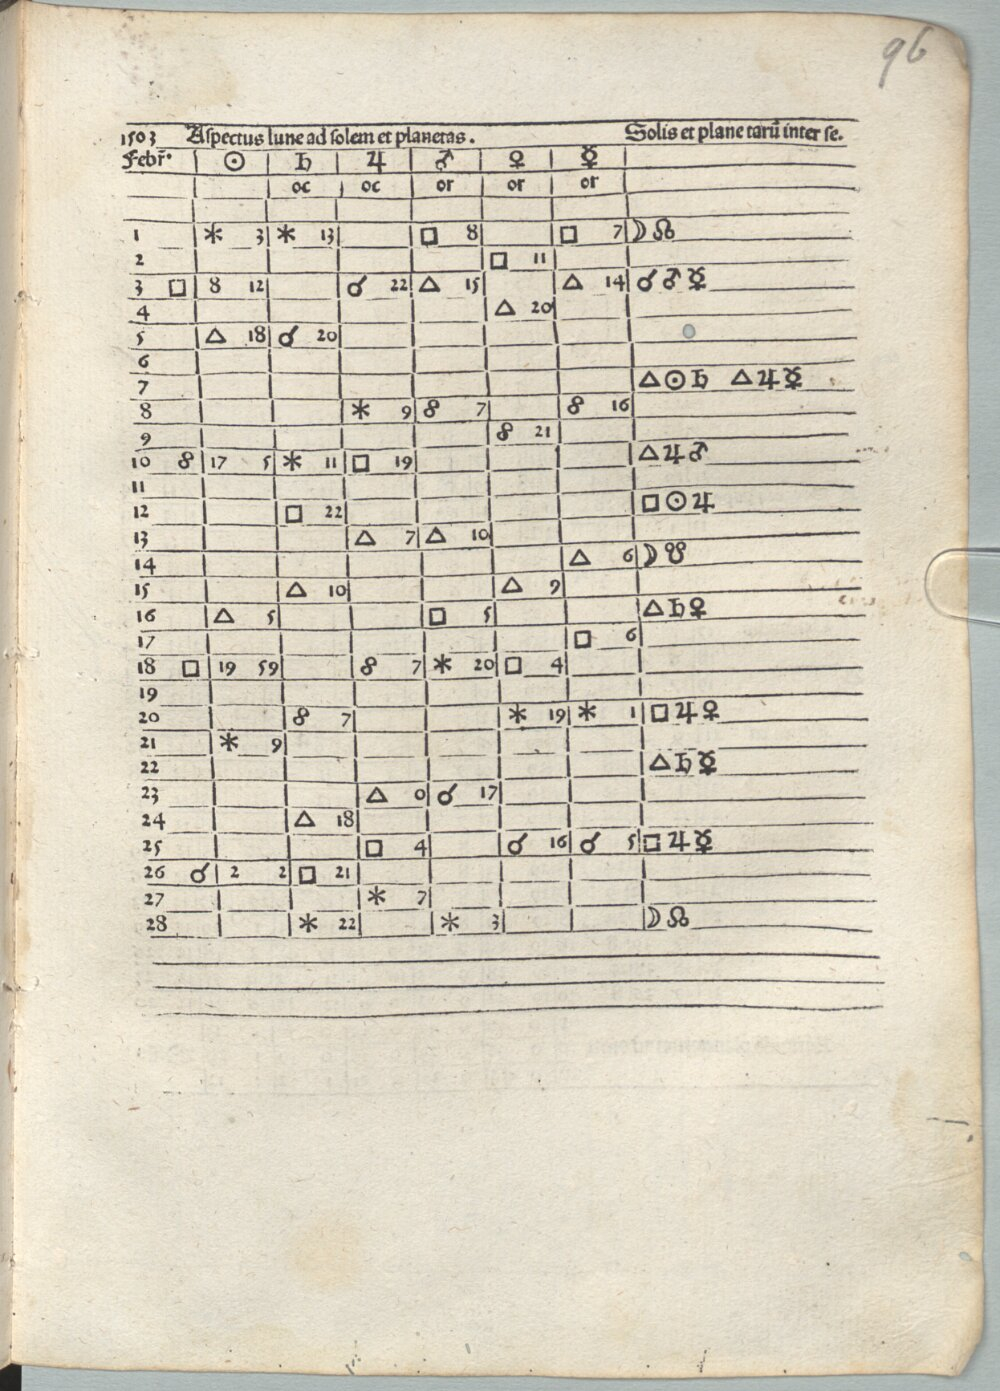 96
1503 Aspectus lune ad solem et planetas. Solis et planetarū inter se.
Febr. ☉ ♄ ♃ ♂ ♀ ☿
oc oc or or or
1 ⚹ 3 ⚹ 13 □ 8 □ 7 ☽ ☊
2 □ 11
3 □ 8 12 ☌ 22 △ 15 △ 14 ☌ ♂ ☿
4 △ 20
5 △ 18 ☌ 20
6
7 △ ☉ ♄ △ ♃ ☿
8 ⚹ 9 ☍ 7 ☍ 16
9 ☍ 21
10 ☍ 17 5 ⚹ 11 □ 19 △ ♃ ♂
11
12 □ 22 □ ☉ ♃
13 △ 7 △ 10
14 △ 6 ☽ ☋
15 △ 10 △ 9
16 △ 5 □ 5 △ ♄ ♀
17 □ 6
18 □ 19 59 ☍ 7 ⚹ 20 □ 4
19
20 ☍ 7 ⚹ 19 ⚹ 1 □ ♃ ♀
21 ⚹ 9
22 △ ♄ ☿
23 △ 0 ☌ 17
24 △ 18
25 □ 4 ☌ 16 ☌ 5 □ ♃ ☿
26 ☌ 2 2 □ 21
27 ⚹ 7
28 ⚹ 22 ⚹ 3 ☽ ☊